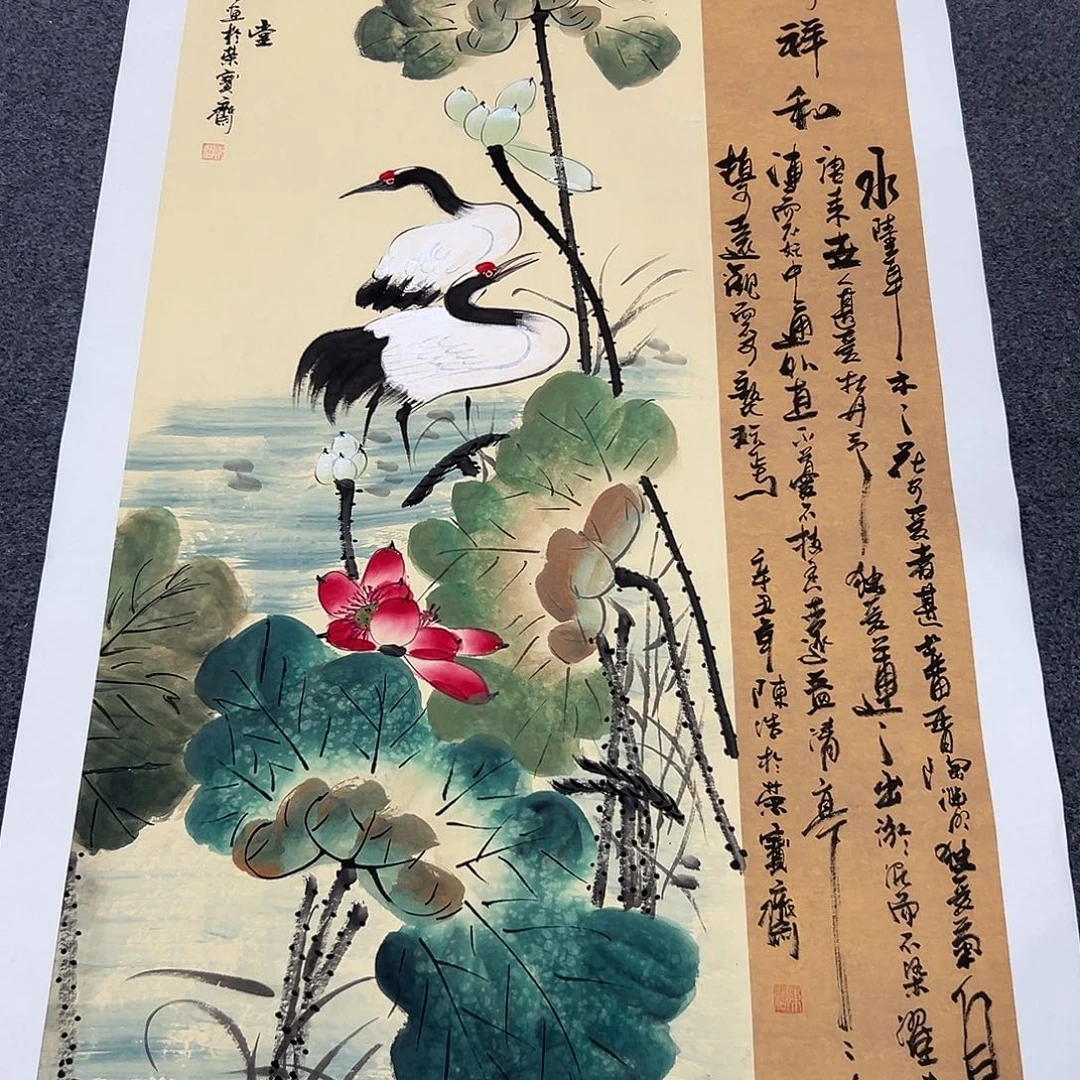 祥和
水陸草木之花可爱者甚蕃晋陶渊明独爱菊自
唐来世人甚爱牡丹予独爱蓮之出淤泥而不染濯
漣而不妖中通外直不蔓不枝香遠益清亭亭
植可遠觀而不可褻玩焉 辛丑年陳浩於荣寶齋
堂
於荣寶齋